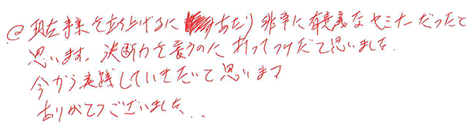 @現在事業を立ち上げるにあたり非常に有意義なセミナーだったと
思います。決断力を養うのに打ってつけだて思いました
今から実践していきたいて思います
ありがてうございました..